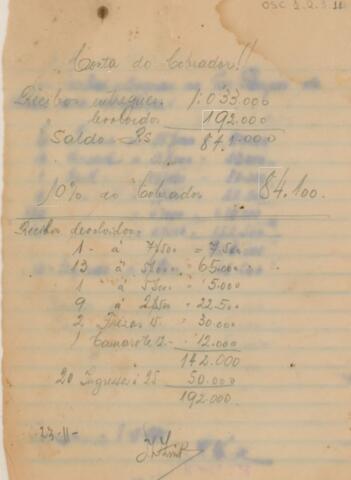 OSC 1.2.3.11
Conta do Cobrador!!
Recibos entregues 1:033.000
devolvidos 192.000
Saldo Rs 841.000
10% ao Cobrador 84.100.
Recibos devolvidos
1 - à 7.500 = 7.500
13 à 5.000 = 65.000
1 à 5.000 = 5.000
9 à 2.500 = 22.500
2 Frezas 15 - 30.000
1 Camarote 12 - 12.000
142.000
20 Ingressos à 25 50.000
192.000
23-11-